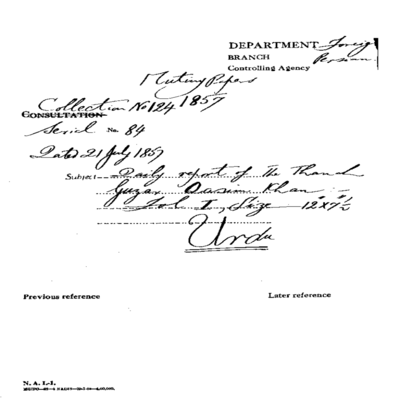 DEPARTMENT Foreign
BRANCH Persian
Controlling Agency
Mutiny Papers
Collection No 124 1857
CONSULTATION
Serial No. 84
Dated 21 July 1857
Subject Daily report of The Thana
Guzar Qasim Khan
Fol I, Size 12" x 7 1/2"
Urdu
Previous reference Later reference
N. A. I.-1.